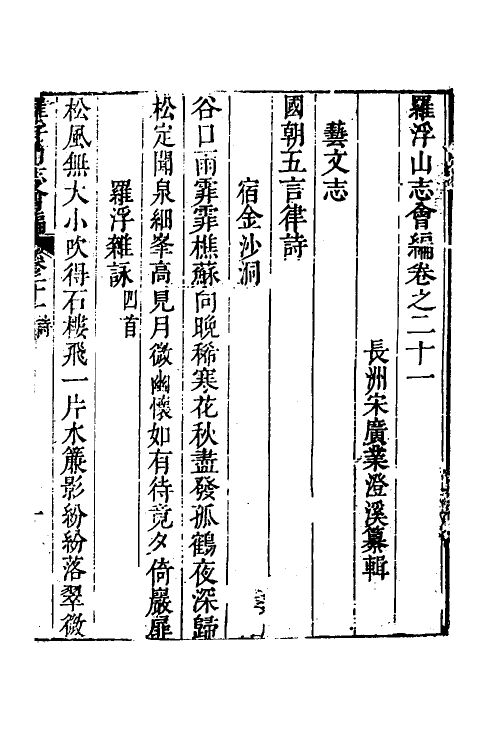 羅浮山志會編卷之二十一
長洲宋廣業澄溪纂輯
藝文志
國朝五言律詩
宿金沙洞
谷口雨霏霏樵蘇向晚稀寒花秋盡發孤鶴夜深歸
松定聞泉細峯高見月微幽懷如有待竟夕倚巖扉
羅浮雜詠四首
松風無大小吹得石樓飛一片水簾影紛紛落翠微
羅浮山志會編 卷二十一 詩 一